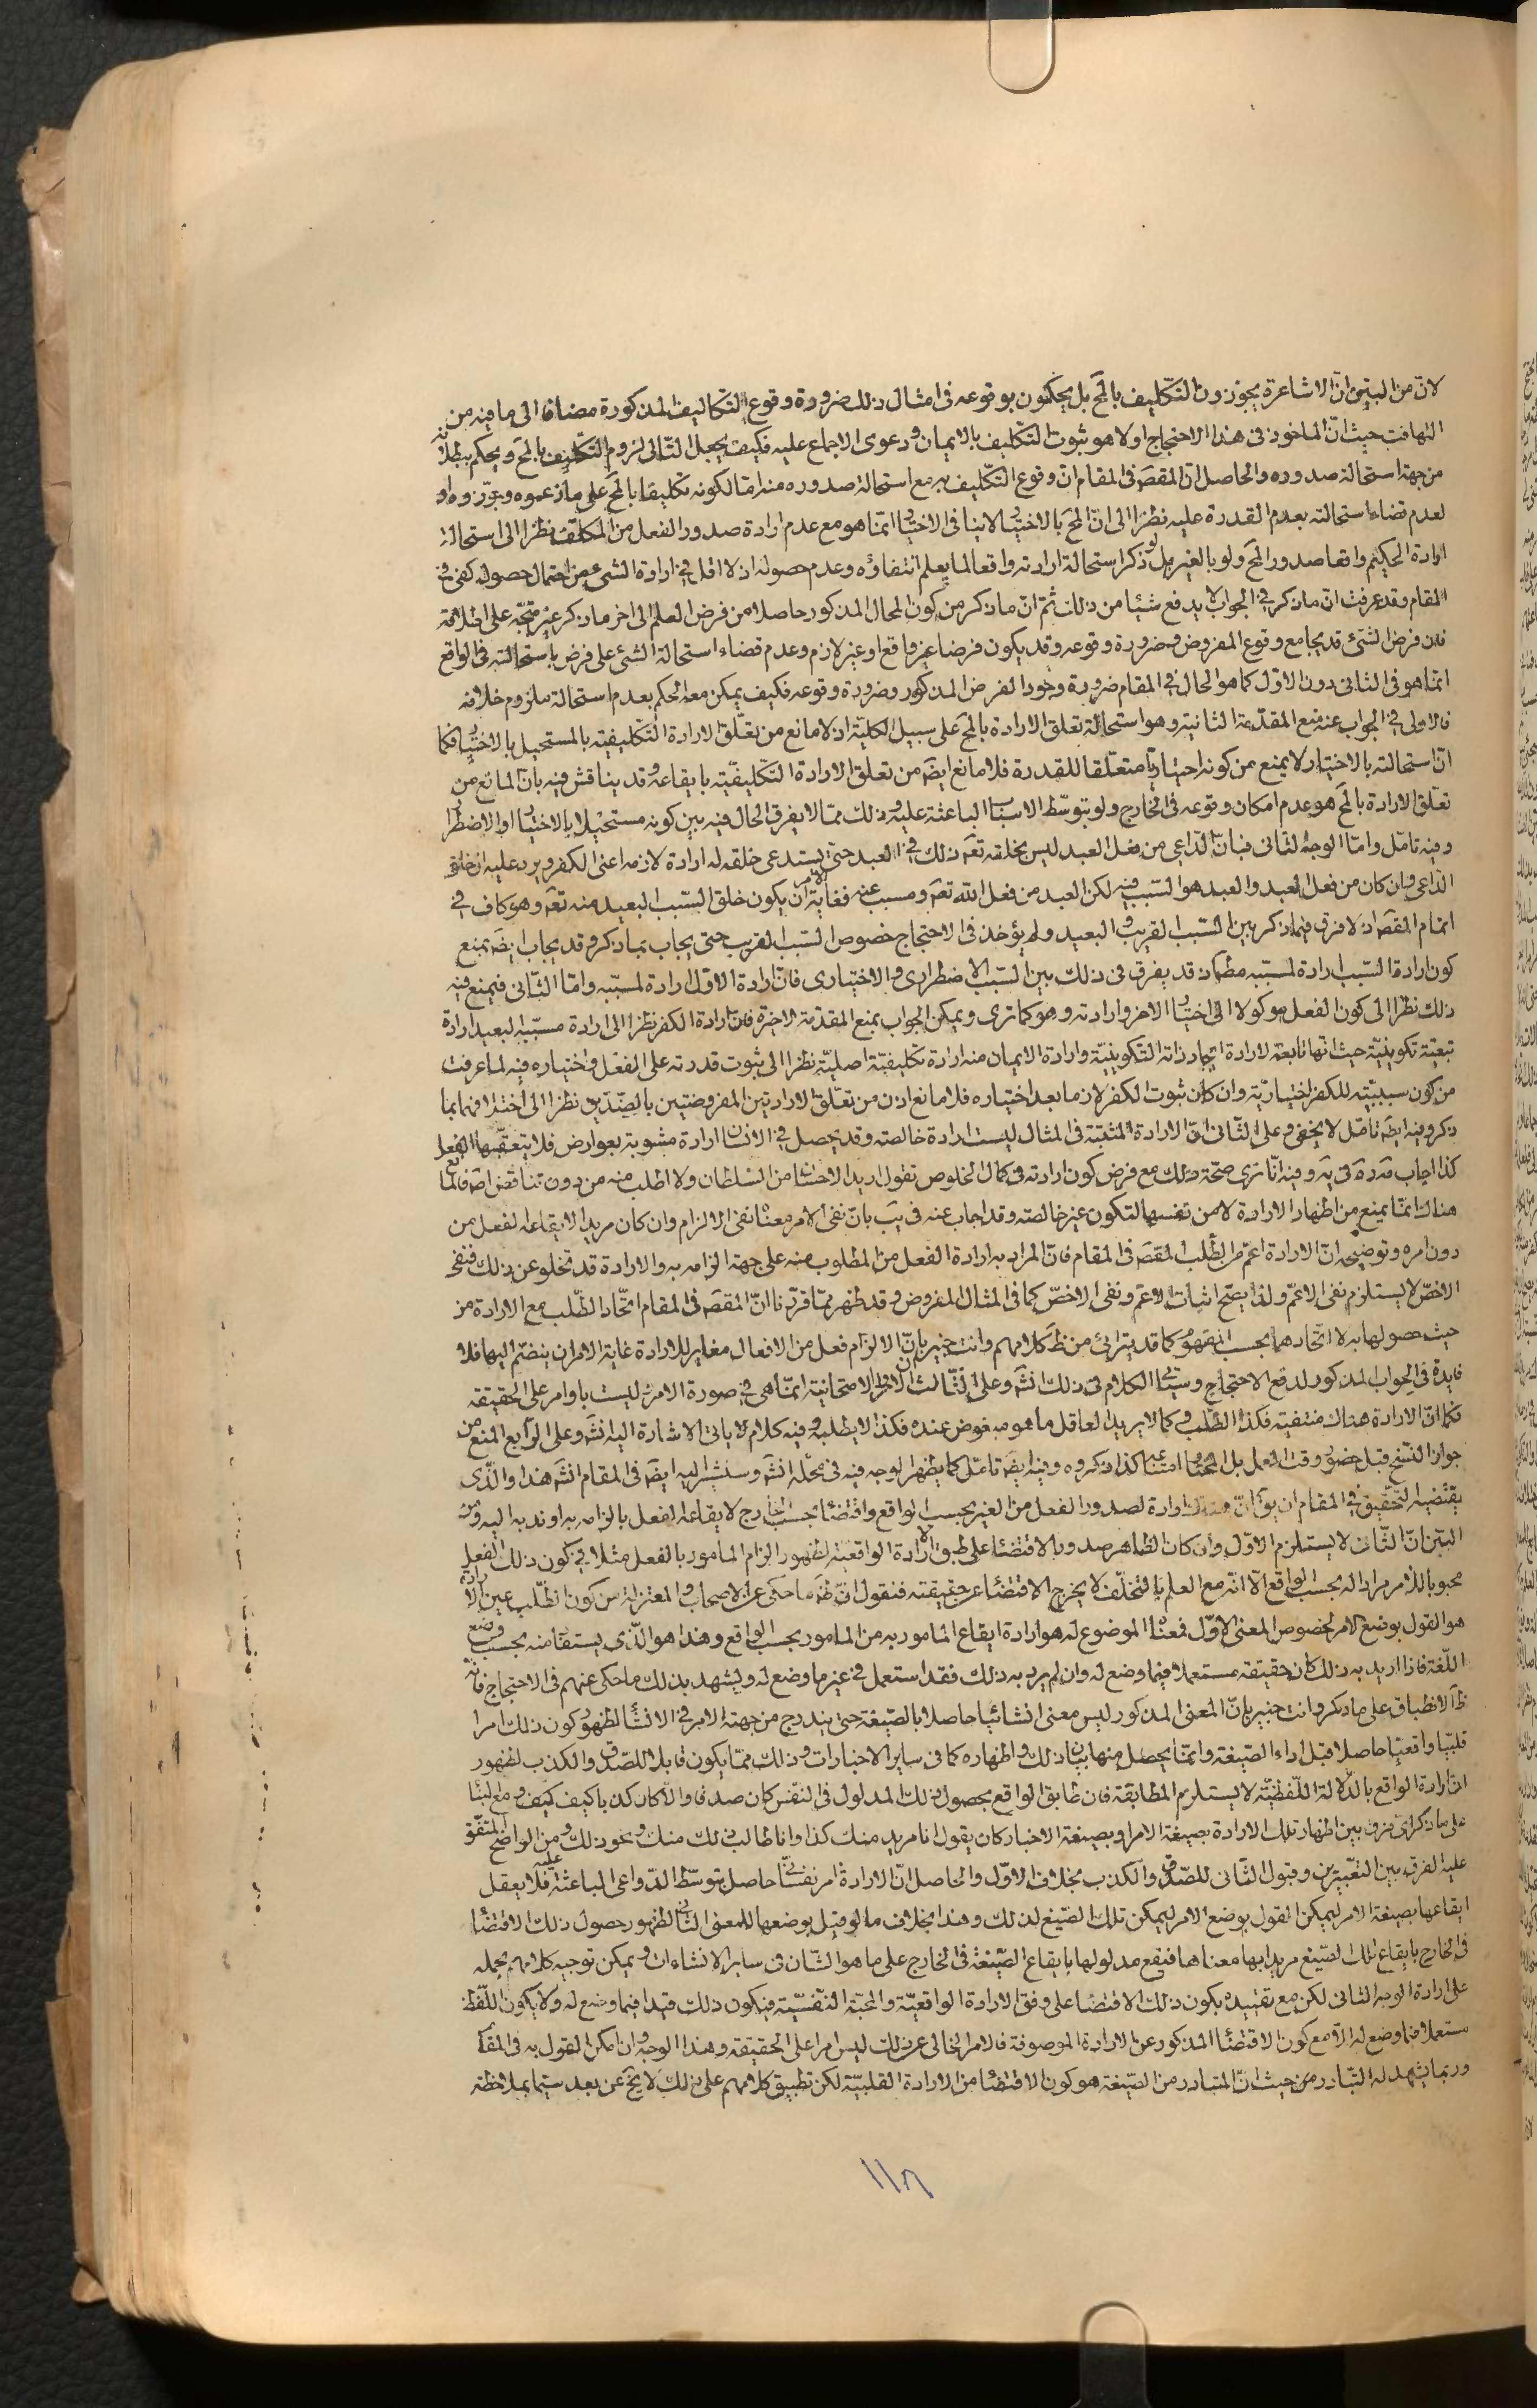 لانّ من البيّن انّ الاشاعرة يجوّزون التكليف بالمح بل يحكمون بوقوعه فى امثال ذلك ضرورة وقوع التكاليف المذكورة مضافا الى ما فيه من
التهافت حيث انّ الماخوذ فى هذا الاحتجاج اولا هو ثبوت التكليف بالايمان ودعوى الاجماع عليه فكيف يجعل التالى لزوم التكليف بالمح ويحكم ببطلانه
من جهة استحالة صدوره والحاصل انّ المقصَ فى المقام انّ وقوع التكليف به مع استحالة صدوره منه امّا لكونه تكليفا بالمح على ما زعموه وجوّزوه او
لعدم قضاء استحالته بعدم القدرة عليه نظرا الى انّ المح بالاختيا لا ينافى الاختيا انّما هو مع عدم ارادة صدور الفعل من المكلّف نظرا الى استحالة
ارادة الحكيم واقعا صدور المح ولو بالغير بل ذكر استحالة ارادته واقعا لما يعلم انتفاؤه وعدم حصوله اذ لا اقلّ فى ارادة الشىء من احتمال حصوله كفى فى
المقام وقد عرفت انّ ما ذكر فى الجواب لا يدفع شيئا من ذلك ثمّ انّ ما ذكر من كون المحال المذكور حاصلا من فرض العلم الى اخر ما ذكر غير متّجه على اطلاقه
فان فرض الشىء قد يجامع وقوع المفروض وضرورة وقوعه وقد يكون فرضا غير واقع او غير لازم وعدم قضاء استحالة الشىء على فرض باستحالته فى الواقع
انّما هو فى الثانى دون الاوّل كما هو الحال فى المقام ضرورة وجود الفرض المذكور وضرورة وقوعه فكيف يمكن معه الحكم بعدم استحالة ملزوم خلافه
فالاولى فى الجواب عنه منع المقدّمة الثانية وهو استحالة تعلّق الارادة بالمح على سبيل الكلية اذ لا مانع من تعلّق الارادة التكليفيّة بالمستحيل بالاختيا فكما
انّ استحالته بالاختيار لا يمنع من كونه اختياريّا متعلّقا للقدرة فلا مانع ايضَ من تعلّق الارادة التكليفيّة بايقاعه وقد يناقش فيه بانّ المانع من
تعلّق الارادة بالمح هو عدم امكان وقوعه فى الخارج ولو بتوسّط الاسباب الباعثة عليه وذلك ممّا لا يفرق الحال فيه بين كونه مستحيلا بالاختيا او بالاضطرا
وفيه تامّل وامّا الوجه الثانى فبانّ الدّاعى من فعل العبد ليس بخلقه تعَ ذلك فى العبد حتى يستدعى خلقه له ارادة لازمه اعنى الكفر ويرد عليه ان خلق
الدّاعى وان كان من فعل العبد والعبد هو السّبب فيه لكن العبد من فعل الله تعَ ومسبب عنه فغاية الامر ان يكون خلق السّبب البعيد منه تعَ وهو كاف فى
اتمام المقصَ اذ لا فرق فيما ذكر بين السّبب القريب والبعيد ولم يؤخذ فى الاحتجاج خصوص السّبب القريب حتى يجاب بما ذكر وقد يجاب ايضَ بمنع
كون ارادة السّبب ارادة لمسبّبه مطَ اذ قد يفرق فى ذلك بين السّبب الاضطرارى والاختيارى فانّ ارادة الاوّل ارادة لمسبّبه وامّا الثّانى فيمنع فيه
ذلك نظرا الى كون الفعل موكولا الى اختيا الاخر وارادته وهو كما ترى ويمكن الجواب بمنع المقدّمة الاخيرة فانّ ارادة الكفر نظرا الى ارادة مسبّبه البعيد ارادة
تبعيّة تكوينيّة حيث انّها تابعة لارادة ايجاد ذاته التكوينيّة وارادة الايمان منه ارادة تكليفيّة اصليّة نظرا الى ثبوت قدرته على الفعل واختياره فيه لما عرفت
من كون سببيّته للكفر اختياريّة وان كان ثبوت الكفر لازما بعد اختياره فلا مانع اذن من تعلّق الارادتين المفروضتين بالضّدّين نظرا الى اختلافهما بما
ذكر وفيه ايضَ تامّل لا يخفى وعلى الثّانى انّ الارادة المثبتة فى المثال ليست ارادة خالصة وقد يحصل فى الانسان ارادة مشوبة بعوارض فلا يتعقّبها الفعل
كذا اجاب فى يَه وفيه انّا نرى صحّة ذلك مع فرض كون ارادته فى كمال الخلوص تقول اريد الاحسا من السّلطان ولا اطلب منه من دون تناقض اصَ فالمانع
هناك انّما يمنع من اظهار الارادة لا من نفسها لتكون غير خالصة وقد اجاب عنه فى يَب بانّ نفى الامر معناه نفى الالزام وان كان مريدا لايقاعه الفعل من
دون امره وتوضيحه انّ الارادة اعمّ من الطّلب المقصَ فى المقام فانّ المراد به ارادة الفعل من المطلوب منه على جهة الزامه به والارادة قد تخلو عن ذلك فنفى
الاخصّ لا يستلزم نفى الاعمّ ولذا يصحّ اثبات الاعمّ ونفى الاخصّ كما فى المثال المفروض وقد ظهر ممّا قرّرنا انّ المقصَ فى المقام اتّحاد الطّلب مع الارادة من
حيث حصولها به لا اتّحادهما بحسب المفهوم كما قد يترائى من ظَ كلامهم وانت خبير بانّ الالزام فعل من الافعال مغاير للارادة غاية الامر ان ينضمّ اليها فلا
فايدة فى الجواب المذكور لدفع الاحتجاج وسيا الكلام فى ذلك انشَ وعلى الثّالث ان الاوامر الامتحانية انّما هى فى صورة الامر ليست باوامر على الحقيقة
فكما انّ الارادة هناك منتفية فكذا الطّلب وكما لا يريد العاقل ما هو مبغوض عنده فكذا لا يطلبه وفيه كلام لا ياتى الاشارة اليه انشَ وعلى الرّابع المنع من
جواز النّسخ قبل حضور وقت العمل بل المختا امتناعه كذا ذكروه وفيه ايضَ تامّل كما يظهر الوجه فيه فى محلّه انشَ وسنشير اليه ايضَ فى المقام انشَ هذا والّذى
يقتضيه التّحقيق فى المقام ان يقَ انّ هناك ارادة لصدور الفعل من الغير بحسب الواقع واقتضاء بحسب الخارج لايقاعه الفعل بالزامه به او ندبه اليه ومن
البيّن انّ الثّانى لا يستلزم الاوّل وان كان الظاهر صدور الاقتضاء على طبق الارادة الواقعيّة لظهور الزام المأمور بالفعل مثلا فى كون ذلك الفعل
محبوبا للامر مرادا له بحسب الواقع الّا انّه مع العلم بالتخلّف لا يخرج الاقتضاء عن حقيقته فنقول انّ ظَ ما حكى عن الاصحاب والمعتزلة من كون الطّلب عين الارادة
هو القول بوضع الامر لخصوص المعنى الاوّل فمعناه الموضوع له هو ارادة ايقاع المأمور به من المأمور بحسب الواقع وهذا هو الّذى يستفا منه بحسب وضع
اللّغة فاذا اريد به ذلك كان حقيقة مستعملا فيما وضع له وان لم يرد به ذلك فقد استعمل فى غير ما وضع له ويشهد بذلك ما حكى عنهم فى الاحتجاج فانّه
ظَ الانطباق على ما ذكر وانت خبير بانّ المعنى المذكور ليس معنى انشائيّا حاصلا بالصّيغة حتى يندرج من جهته الامر فى الانشا لظهور كون ذلك امرا
قلبيّا واقعيّا حاصلا قبل اداء الصّيغة وانّما يحصل منها بيان ذلك واظهاره كما فى ساير الاخبارات وذلك ممّا يكون قابلا للصّدق والكذب لظهور
انّ ارادة الواقع بالدّلالة اللّفظيّة لا يستلزم المطابقة فان طابق الواقع بحصول ذلك المدلول فى النّفس كان صدقا والّا كان كذبا كيف
على ما ذكر اىّ فرق بين اظهار تلك الارادة بصيغة الامر او بصيغة الاخبار كان يقول انا مريد منك كذا وانا طالب ذلك منك ونحو ذلك ومن الواضح المتّفق
عليه الفرق بين التّعبيرين وقبول الثّانى للصّدق والكذب بخلاف الاوّل والحاصل انّ الارادة امر نفسانى حاصل بتوسّط الدّواعى الباعثة عليه فلا يعقل
ايقاعها بصيغة الامر ليمكن القول بوضع الامر ليمكن تلك الصّيغ لذلك وهذا بخلاف ما لو قيل بوضعها للمعنى الثّانى لظهور حصول ذلك الاقتضاء
فى الخارج بايقاع تلك الصّيغ مريدا بها معناها فيقع مدلولها بايقاع الصّيغة فى الخارج على ما هو الشّان فى ساير الانشاءات ويمكن توجيه كلامهم بحمله
على ارادة الوجه الثانى لكن مع تقييده بكون ذلك الاقتضاء على وفق الارادة الواقعيّة والمحبّة النّفسيّة فيكون ذلك قيدا فيما وضع له ولا يكون اللّفظ
مستعملا فيما وضع له الّا مع كون الاقتضاء المذكور عن الارادة الموصوفة فالامر الخالى عن ذلك ليس امرا على الحقيقة وهذا الوجه وان امكن القول به فى المقا
وربما يشهد له التّبادر من حيث انّ المتبادر من الصّيغة هو كون الاقتضاء من الارادة القلبيّة لكن تطبيق كلامهم على ذلك لا يخَ عن بعد سيّما بملاحظة